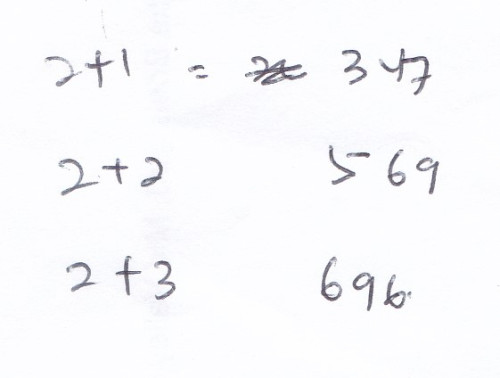 2+1 = 347
2+2 569
2+3 696